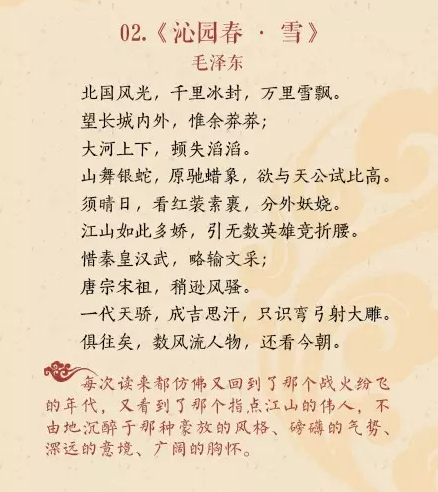 02.《沁园春·雪》
毛泽东
北国风光，千里冰封，万里雪飘。
望长城内外，惟余莽莽；
大河上下，顿失滔滔。
山舞银蛇，原驰蜡象，欲与天公试比高。
须晴日，看红装素裹，分外妖娆。
江山如此多娇，引无数英雄竞折腰。
惜秦皇汉武，略输文采；
唐宗宋祖，稍逊风骚。
一代天骄，成吉思汗，只识弯弓射大雕。
俱往矣，数风流人物，还看今朝。
每次读来都仿佛又回到了那个战火纷飞
的年代，又看到了那个指点江山的伟人，不
由地沉醉于那种豪放的风格、磅礴的气势、
深远的意境、广阔的胸怀。